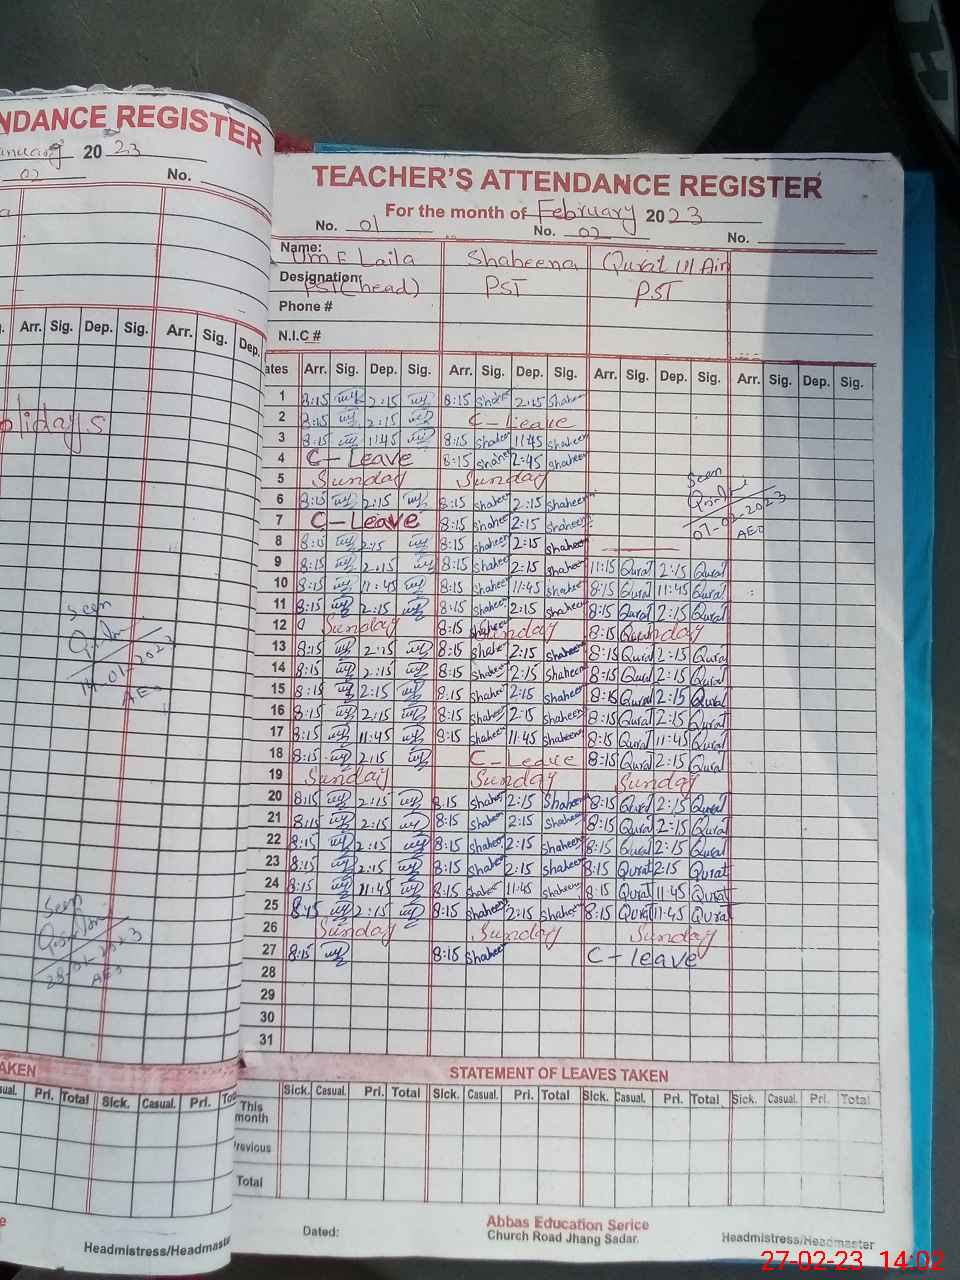 NDANCE REGISTER
20 23
02 No.
Arr. Sig. Dep. Sig. Arr. Sig. Dep.
olidays
Seen
14-01-2023
AEO
Seen
28-01-2023
AEO
TAKEN
Pri. Total Sick. Casual. Pri.
Headmistress/Headmaste
TEACHER'S ATTENDANCE REGISTER
For the month of February 2023
No. 01 No. 02 No.
Name: Um E Laila Shaheena Qurat Ul Ain
Designation: PST (head) PST PST
Phone #
N.I.C #
ates Arr. Sig. Dep. Sig. Arr. Sig. Dep. Sig. Arr. Sig. Dep. Sig. Arr. Sig. Dep. Sig.
1 8:15 2:15 8:15 Shaheen 2:15 Shaheen
2 8:15 2:15 C-Leave
3 8:15 11:45 8:15 Shaheen 11:45 Shaheen
4 C-Leave 8:15 Shaheen 2:45 Shaheen
5 Sunday Sunday
Seen
07-02-2023
AEO
6 8:15 2:15 8:15 Shaheen 2:15 Shaheen
7 C-Leave 8:15 Shaheen 2:15 Shaheen
8 8:15 2:15 8:15 Shaheen 2:15 Shaheen
9 8:15 2:15 8:15 Shaheen 2:15 Shaheen 11:15 Qurat 2:15 Qurat
10 8:15 11:45 8:15 Shaheen 11:45 Shaheen 8:15 Qurat 11:45 Qurat
11 8:15 2:15 8:15 Shaheen 2:15 Shaheen 8:15 Qurat 2:15 Qurat
12 Sunday 8:15 Shaheen Sunday 8:15 Qurat Sunday
13 8:15 2:15 8:15 Shaheen 2:15 Shaheen 8:15 Qurat 2:15 Qurat
14 8:15 2:15 8:15 Shaheen 2:15 Shaheen 8:15 Qurat 2:15 Qurat
15 8:15 2:15 8:15 Shaheen 2:15 Shaheen 8:15 Qurat 2:15 Qurat
16 8:15 2:15 8:15 Shaheen 2:15 Shaheen 8:15 Qurat 2:15 Qurat
17 8:15 11:45 8:15 Shaheen 11:45 Shaheen 8:15 Qurat 11:45 Qurat
18 8:15 2:15 C-Leave 8:15 Qurat 2:15 Qurat
19 Sunday Sunday Sunday
20 8:15 2:15 8:15 Shaheen 2:15 Shaheen 8:15 Qurat 2:15 Qurat
21 8:15 2:15 8:15 Shaheen 2:15 Shaheen 8:15 Qurat 2:15 Qurat
22 8:15 2:15 8:15 Shaheen 2:15 Shaheen 8:15 Qurat 2:15 Qurat
23 8:15 2:15 8:15 Shaheen 2:15 Shaheen 8:15 Qurat 2:15 Qurat
24 8:15 11:45 8:15 Shaheen 11:45 Shaheen 8:15 Qurat 11:45 Qurat
25 8:15 2:15 8:15 Shaheen 2:15 Shaheen 8:15 Qurat 11:45 Qurat
26 Sunday Sunday Sunday
27 8:15 8:15 Shaheen C-leave
28
29
30
31
STATEMENT OF LEAVES TAKEN
Sick. Casual. Pri. Total Sick. Casual. Pri. Total Sick. Casual. Pri. Total Sick. Casual. Pri. Total
This month
Previous
Total
Dated:
Abbas Education Serice
Church Road Jhang Sadar.
Headmistress/Headmaster
27-02-23 14:02